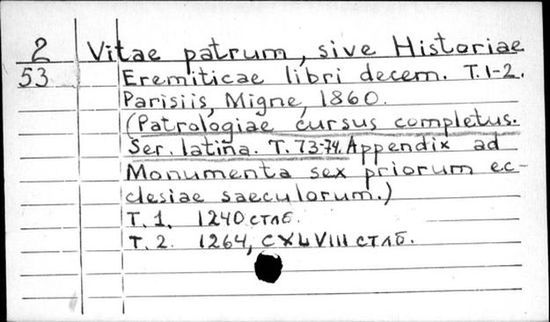 2 Vitae patrum, sive Historiae
53 Eremiticae libri decem. T.1-2.
Parisiis, Migne, 1860.
(Patrologiae cursus completus.
Ser. latina. T. 73-74. Appendix ad
Monumenta sex priorum ec-
clesiae saeculorum.)
T. 1. 1240 стлб.
T. 2. 1264, CXLVIII стлб.